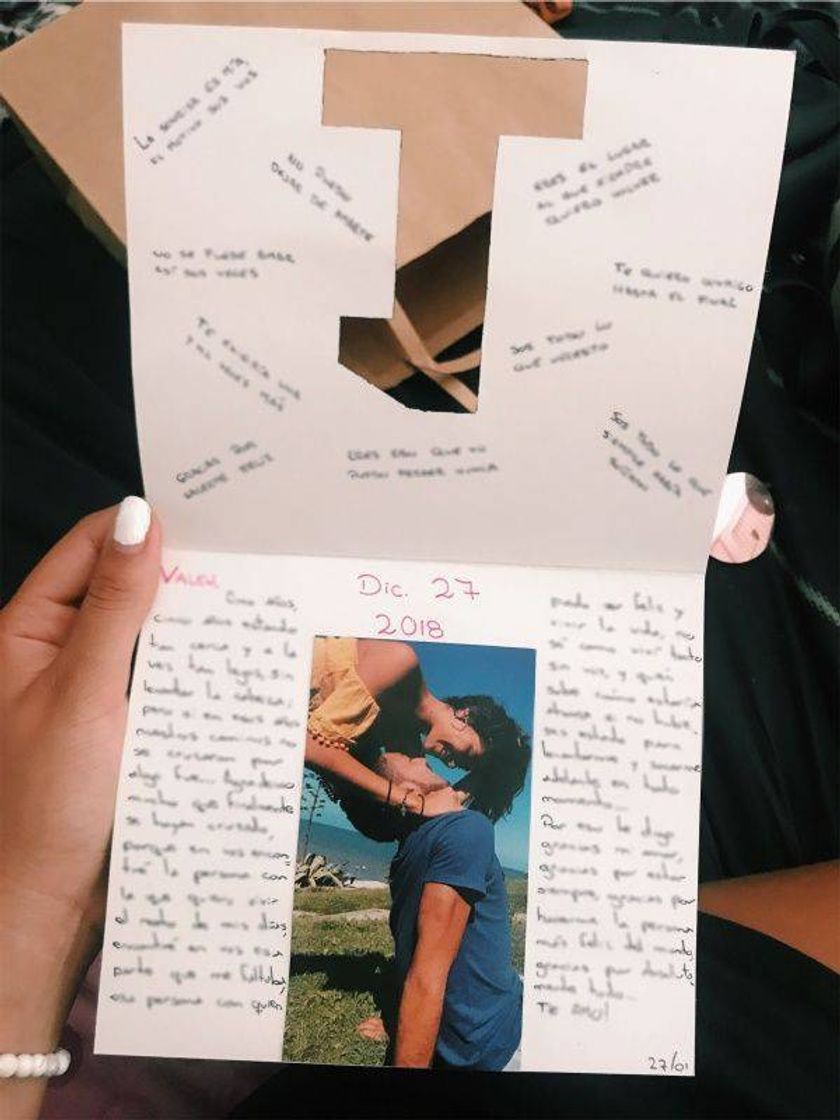 LA SONRISA ES MÍA,
EL MOTIVO SOS VOS
NO PUEDO
DEJAR DE AMARTE
ERES EL LUGAR
AL QUE SIEMPRE
QUIERO VOLVER
NO SE PUEDE
ASÍ DOS VECES
TE QUIERO CONMIGO
HASTA EL FINAL
TE ELEGIRÍA UNA
Y MIL VECES MÁS
SOS TODO LO
QUE NECESITO
GRACIAS POR
HACERME FELIZ
ERES ESO QUE NO
PUEDO PERDER NUNCA
SOS TODO LO QUE
SIEMPRE
Dic. 27
2018
VALEN
Cinco años,
cinco años estando
tan cerca y a la
vez tan lejos, sin
levantar la cabeza,
pero si en esos años
nuestros caminos no
se cruzaron por
algo fue... Agradezco
mucho que finalmente
se hayan cruzado,
porque en vos encon
tré la persona con
la que quiero vivir
el resto de mis días,
encontré en vos esa
parte que me faltaba,
esa persona con quien
puedo ser feliz y
vivir la vida, no
sé como viví tanto
sin vos, y quien
sabe como estaría
ahora si no hubie
ses estado para
levantarme y sacarme
adelante en todo
momento...
Por eso te digo
gracias mi amor,
gracias por estar
siempre, gracias por
hacerme la persona
más feliz del mundo,
gracias por absoluta
mente todo...
TE AMO!
27/01